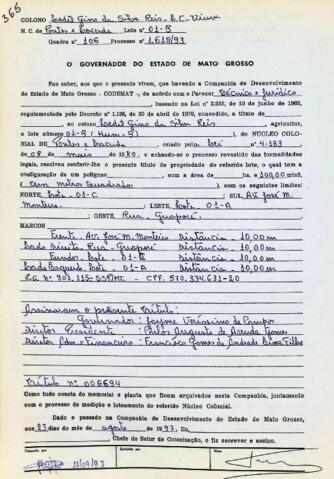 365
COLONO Loedil Gino da Silva Reis - E.C. Viuva
N.C. de Pontes e Lacerda Lote nº 01-B
Quadra nº 106 Processo nº 1.618/93
O GOVERNADOR DO ESTADO DE MATO GROSSO
Faz saber, aos que o presente virem, que havendo a Companhia de Desenvolvimento
do Estado de Mato Grosso - CODEMAT -, de acordo com o Parecer Técnico e Jurídico
baseado na Lei nº 2.933, de 10 de junho de 1969,
regulamentada pelo Decreto nº 1.138, de 30 de abril de 1970, concedido, a título de
ao Loedil Gino da Silva Reis, agricultor,
o lote número 01-B (Hum-B) do NÚCLEO COLO-
NIAL DE Pontes e Lacerda, criado pelo Lei nº 4.193
de 08 de maio de 1980, e achando-se o processo revestido das formalidades
legais, resolveu conferir-lhe o presente título de propriedade do referido lote, o qual tem a
configuração de um polígono com a área de há 100,00 m2,
(cem metros quadrados) com os seguintes limites:
NORTE, Lote 01-C SUL, Av. José M.
Monteiro LESTE, Lote 01-A
OESTE, Rua Guaporé
MARCOS
Frente - Av. José M. Monteiro Distância - 10,00m
Lado Direito - Rua Guaporé Distância - 10,00m
Fundos - Lote 01-C Distância - 10,00m
Lado Esquerdo - Lote 01-A Distância - 10,00m
Assinaram o presente Título:
Governador: Jayme Veríssimo de Campos
Diretor Presidente: Carlos Augusto de Arruda Gomes
Diretor Adm. e Financeiro: Francisco Gomes de Andrade Lima Filho
Título nº 006694
Como tudo consta do memorial e planta que ficam arquivados nesta Companhia, juntamente
com o processo de medição e loteamento do referido Núcleo Colonial.
Dado e passado na Companhia de Desenvolvimento do Estado de Mato Grosso,
aos 23 dias do mês de agosto de 1993.
Chefe do Setor de Colonização, o fiz escrever e assino.